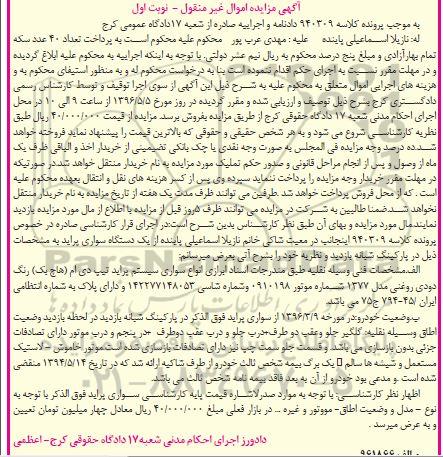 آگهی مزایده اموال غیر منقول - نوبت اول
به موجب پرونده کلاسه ۹۴۰۳۰۹ دادنامه و اجراییه صادره از شعبه ۱۷دادگاه عمومی کرج
له: نازیلا اسماعیلی پاینده علیه: مهدی عرب پور محکوم علیه محکوم است به پرداخت تعداد ۴۰ عدد سکه
تمام بهارآزادی و مبلغ پنج درصد محکوم به ریال نیم عشر دولتی. با توجه به اینکه اجراییه به محکوم علیه ابلاغ گردیده
و در مهلت مقرر نسبت به اجرای حکم اقدام ننموده است بنا به درخواست محکوم له و به منظور استیفای محکوم به و
هزینه های اجرایی اموال متعلق به محکوم علیه به شرح ذیل این آگهی از سوی اجرا توقیف و توسط کارشناس رسمی
دادگستری کرج بشرح ذیل توصیف و ارزیابی شده و مقرر گردیده در روز مورخ ۱۳۹۶/۵/۵ از ساعت ۹ الی ۱۰ در محل
اجرای احکام مدنی شعبه ۱۷ دادگاه حقوقی کرج از طریق مزایده بفروش برسد. مزایده از قیمت ۴۰/۰۰۰/۰۰۰ ریال طبق
نظریه کارشناسی شروع می شود و به هر شخص حقیقی و حقوقی که بالاترین قیمت را پیشنهاد نماید فروخته خواهد
شد.ده درصد وجه مزایده فی المجلس به صورت وجه نقدی یا چک بانکی تضمینی از خریدار اخذ و الباقی ظرف یک
ماه از وصول و پس از انجام مراحل قانونی و صدور حکم تملیک مورد مزایده به نام خریدار منتقل خواهد شد.در صورتیکه
در مهلت مقرر خریدار وجه مزایده را پرداخت ننماید سپرده وی پس از کسر هزینه های نقل و انتقال بعهده محکوم علیه
است . که از محل فروش پرداخت خواهد شد .طرفین می توانند ظرف مدت یک هفته از تاریخ مزایده به نام خریدار منتقل
نخواهد شد.ضمنا طالبین به شرکت در مزایده می توانند ظرف ۵روز قبل از مزایده با اطلاع از مال مورد مزایده بازدید
نمایند.مال مورد مزایده و بهای آن طبق نظر کارشناس بدین شرح است:در اجرای قرار کارشناسی صادره در خصوص
پرونده کلاسه ۹۴۰۳۰۹ اینجانب در معیت شاکی خانم نازیلا اسماعیلی پاینده از یک دستگاه سواری پراید به مشخصات
ذیل در پارکینگ شبانه بازدید و نظریه خود را بشرح آتی بعرض میرسانم:
الف.مشخصات فنی وسیله نقلیه طبق مندرجات اسناد ابرازی انواع سواری سیستم پراید تیپ دی ام (هاچ بک) رنگ
دودی روغنی مدل ۱۳۷۷ شماره موتور ۰۹۱۰۱۹۸ وشماره شاسی ۱۴۲۲۷۷۱۴۸۰۵۳ و دارای پلاک به شماره انتظامی
ایران ۴۵/-۷۹۴ ج۷۵ می باشد.
ب.وضعیت خودرو:در مورخه ۱۳۹۶/۳/۹ از سواری پراید فوق الذکر در پارکینگ شبانه بازدید در لحظه بازدید وضعیت
اطاق وسیله نقلیه: گلگیر جلو وعقب دو طرف+درب جلو و درب عقب دوطرف +در پنجم و درب موتور دارای تصادفات
جزئی بدون بازسازی می باشد و قسمت جلو سمت چپ نیز دارای تصادفات بازسازی شده است موتور خاموش -لاستیک
مستعمل و شیشه ها سالم یک برگ بیمه شخص ثالث خودرو از طرف شاکیه ارائه شد که در تاریخ ۱۳۹۴/۵/۱۴ منقضی
شده است .و مدعی بود خودرو از آن به بعد فاقد بیمه نامه شخص ثالث می باشد.
اظهار نظر کارشناسی: با توجه به موارد صدرالاشاره قیمت پایه کارشناسی سواری پراید فوق الذکر با توجه به
نوع - مدل و وضعیت اطاق- مووتور و غیره ... در بازار فعلی مبلغ ۴۰/۰۰۰/۰۰۰ ریال معادل چهار میلیون تومان تعیین
و به عرض میرسد .
دادورز اجرای احکام مدنی شعبه۱۷ دادگاه حقوقی کرج- اعظمی
م الف ۹۶۱۸۶۶